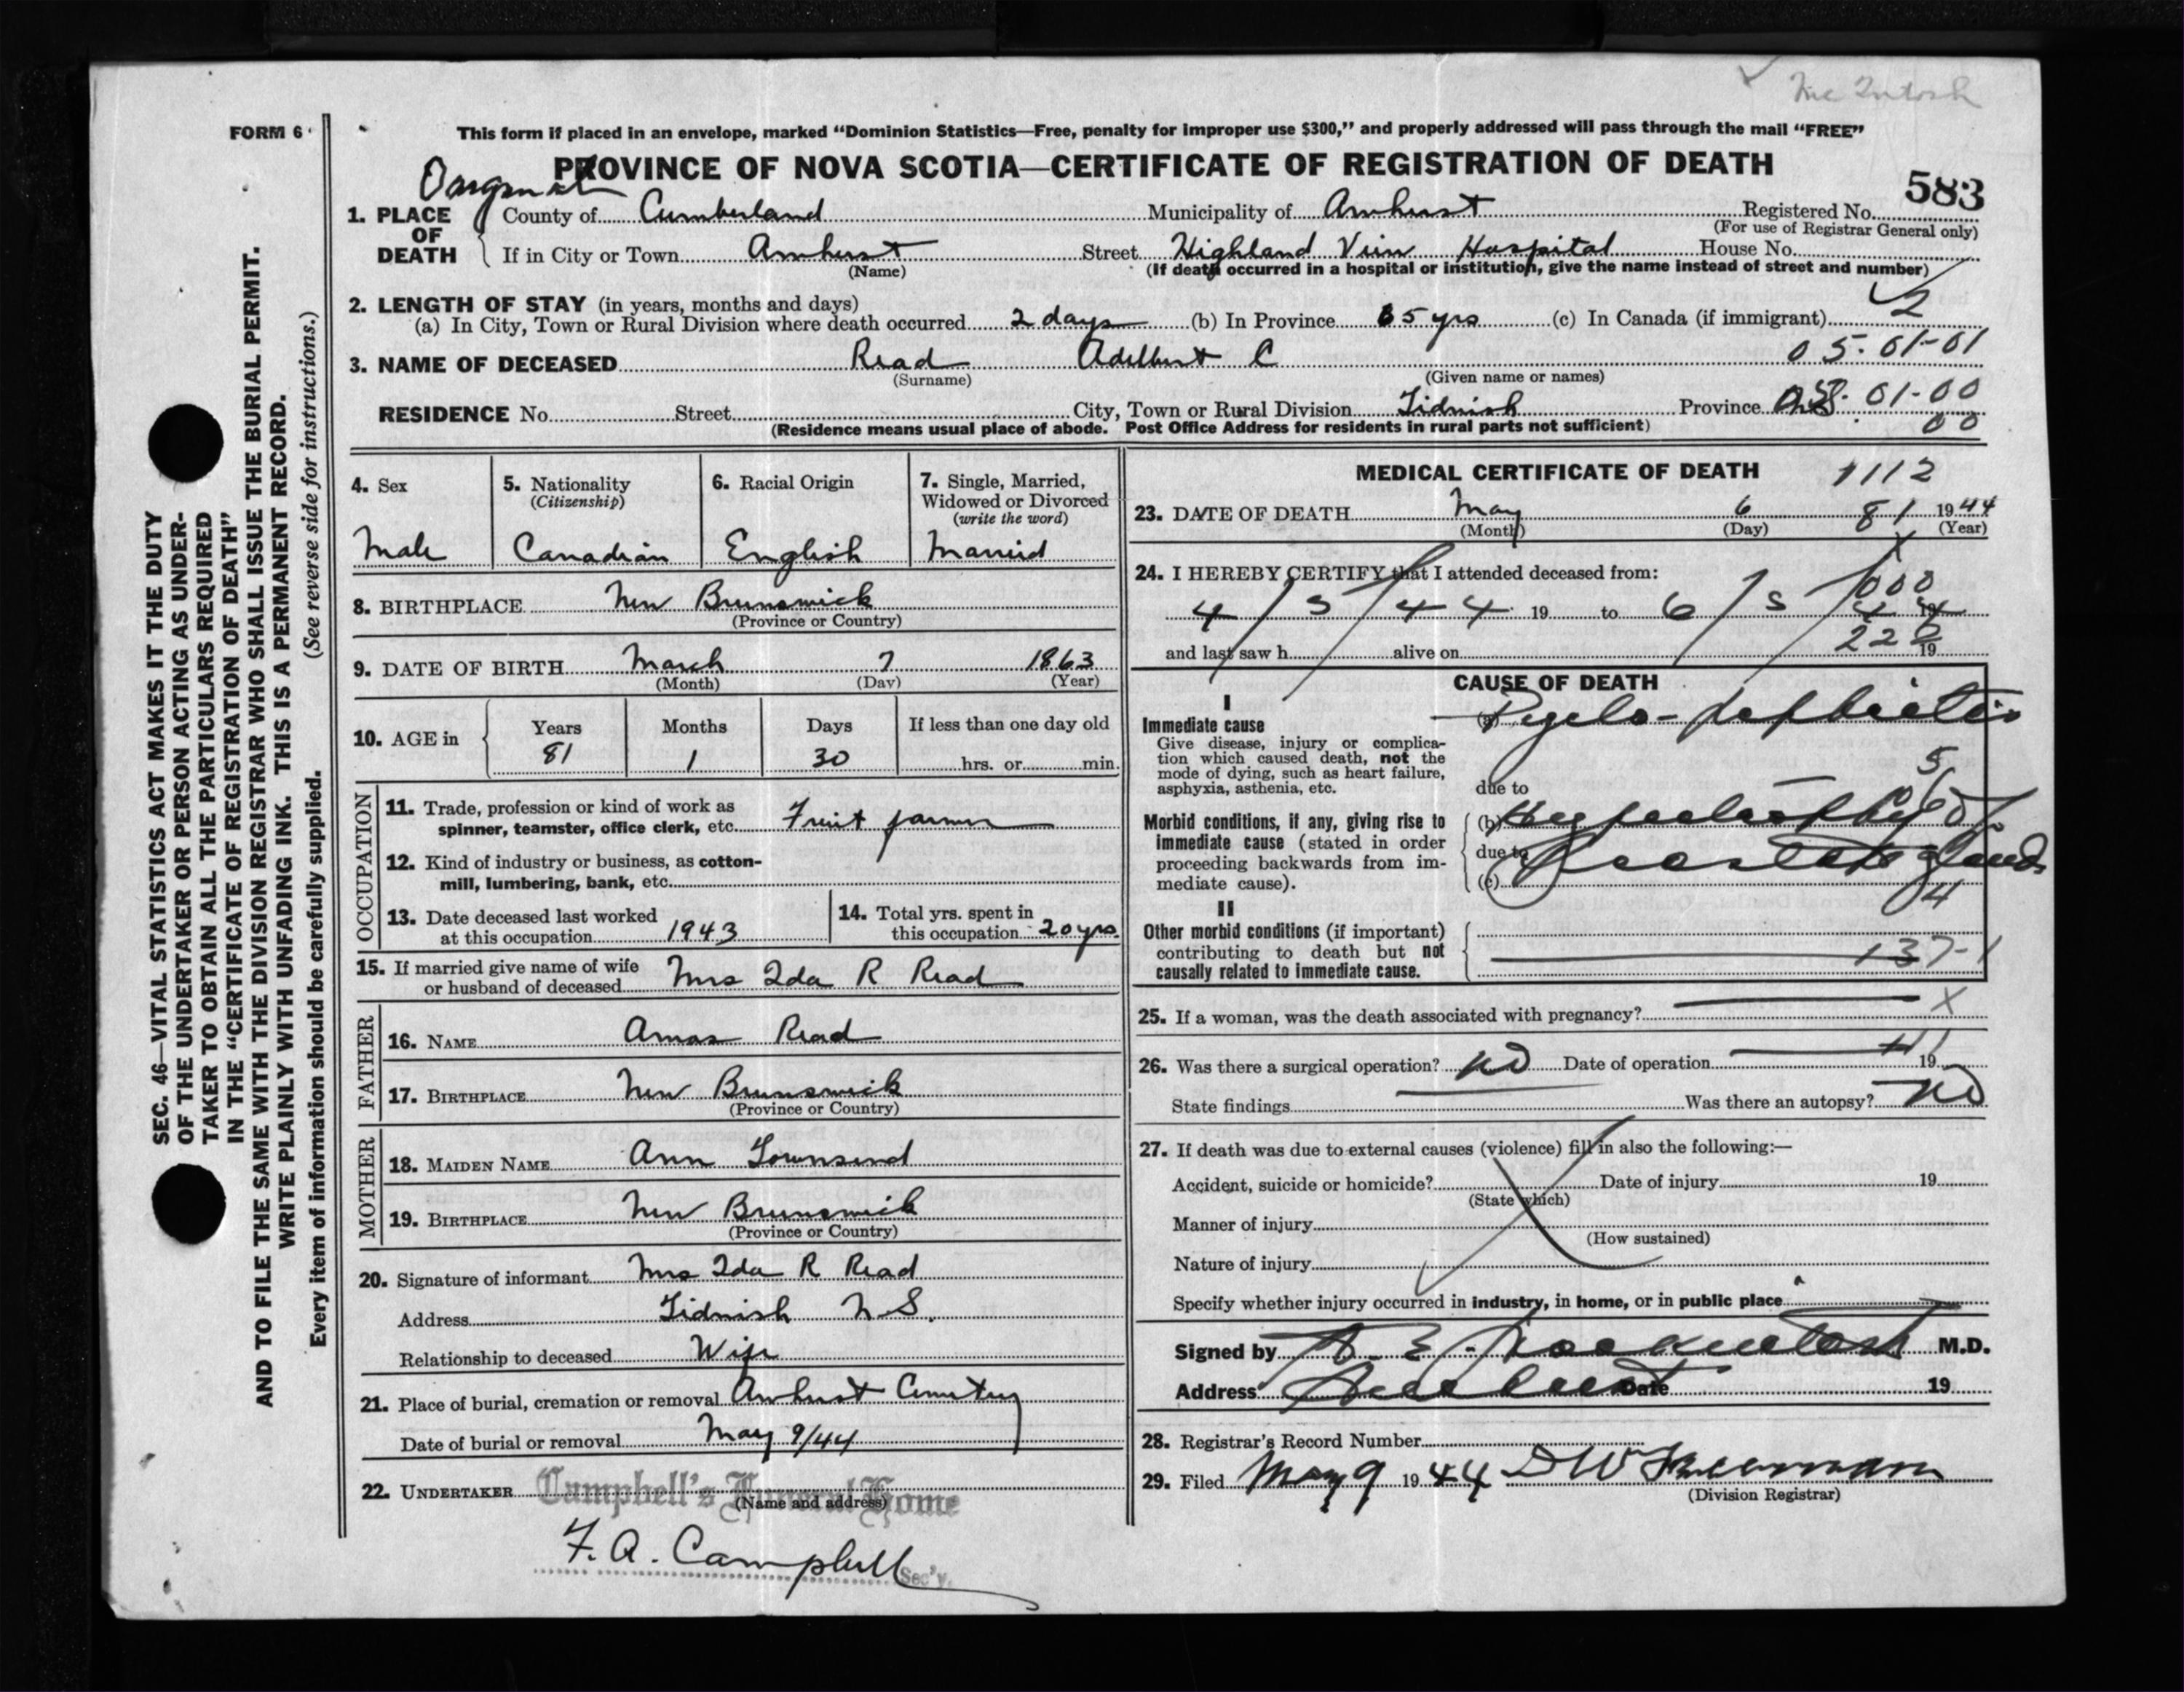 McIntosh
FORM 6
This form if placed in an envelope, marked "Dominion Statistics—Free, penalty for improper use $300," and properly addressed will pass through the mail "FREE"
PROVINCE OF NOVA SCOTIA—CERTIFICATE OF REGISTRATION OF DEATH
583
1. PLACE OF DEATH
County of Cumberland Municipality of Amherst Registered No.
(For use of Registrar General only)
If in City or Town Amherst Street Highland View Hospital House No.
(Name) (If death occurred in a hospital or institution, give the name instead of street and number)
2. LENGTH OF STAY (in years, months and days)
2
(a) In City, Town or Rural Division where death occurred 2 days (b) In Province 65 yrs (c) In Canada (if immigrant)
3. NAME OF DECEASED Read Adelbert C 05-01-01
(Surname) (Given name or names)
RESIDENCE No. Street City, Town or Rural Division Tidnish Province 01-00
(Residence means usual place of abode. Post Office Address for residents in rural parts not sufficient) 00
4. Sex
Male
5. Nationality
(Citizenship)
Canadian
6. Racial Origin
English
7. Single, Married,
Widowed or Divorced
(write the word)
Married
8. BIRTHPLACE New Brunswick
(Province or Country)
9. DATE OF BIRTH March 7 1863
(Month) (Day) (Year)
10. AGE in
Years Months Days If less than one day old
81 1 30 hrs. or min.
OCCUPATION
11. Trade, profession or kind of work as
spinner, teamster, office clerk, etc. Fruit farmer
12. Kind of industry or business, as cotton-
mill, lumbering, bank, etc.
13. Date deceased last worked
at this occupation 1943
14. Total yrs. spent in
this occupation 20 yrs.
15. If married give name of wife
or husband of deceased Mrs Ida R Read
FATHER
16. NAME Amos Read
17. BIRTHPLACE New Brunswick
(Province or Country)
MOTHER
18. MAIDEN NAME Ann Townsend
19. BIRTHPLACE New Brunswick
(Province or Country)
20. Signature of informant Mrs Ida R Read
Address Tidnish N.S.
Relationship to deceased Wife
21. Place of burial, cremation or removal Amherst Cemetery
Date of burial or removal May 9/44
22. UNDERTAKER Campbell's Funeral Home
(Name and address)
F. A. Campbell
Sec'y.
MEDICAL CERTIFICATE OF DEATH 1112
23. DATE OF DEATH May 6 81 1944
(Month) (Day) (Year)
24. I HEREBY CERTIFY that I attended deceased from:
000
4/5/44 19 to 6/5/44 19
222
and last saw h alive on 19
CAUSE OF DEATH
I
Immediate cause
Give disease, injury or complica-
tion which caused death, not the
mode of dying, such as heart failure,
asphyxia, asthenia, etc.
(a) Pyelo-nephritis
due to
Morbid conditions, if any, giving rise to
immediate cause (stated in order
proceeding backwards from im-
mediate cause).
(b) Hypertrophy of
due to Prostate gland
(c)
II
Other morbid conditions (if important)
contributing to death but not
causally related to immediate cause.
137-1
25. If a woman, was the death associated with pregnancy? X
26. Was there a surgical operation? no Date of operation 19
State findings Was there an autopsy? no
27. If death was due to external causes (violence) fill in also the following:—
Accident, suicide or homicide? Date of injury 19
(State which)
Manner of injury
(How sustained)
Nature of injury
Specify whether injury occurred in industry, in home, or in public place
Signed by M.D.
Address Amherst Date 19
28. Registrar's Record Number
29. Filed May 9 1944
(Division Registrar)
SEC. 46—VITAL STATISTICS ACT MAKES IT THE DUTY
OF THE UNDERTAKER OR PERSON ACTING AS UNDER-
TAKER TO OBTAIN ALL THE PARTICULARS REQUIRED
IN THE "CERTIFICATE OF REGISTRATION OF DEATH"
AND TO FILE THE SAME WITH THE DIVISION REGISTRAR WHO SHALL ISSUE THE BURIAL PERMIT.
WRITE PLAINLY WITH UNFADING INK. THIS IS A PERMANENT RECORD.
Every item of information should be carefully supplied. (See reverse side for instructions.)